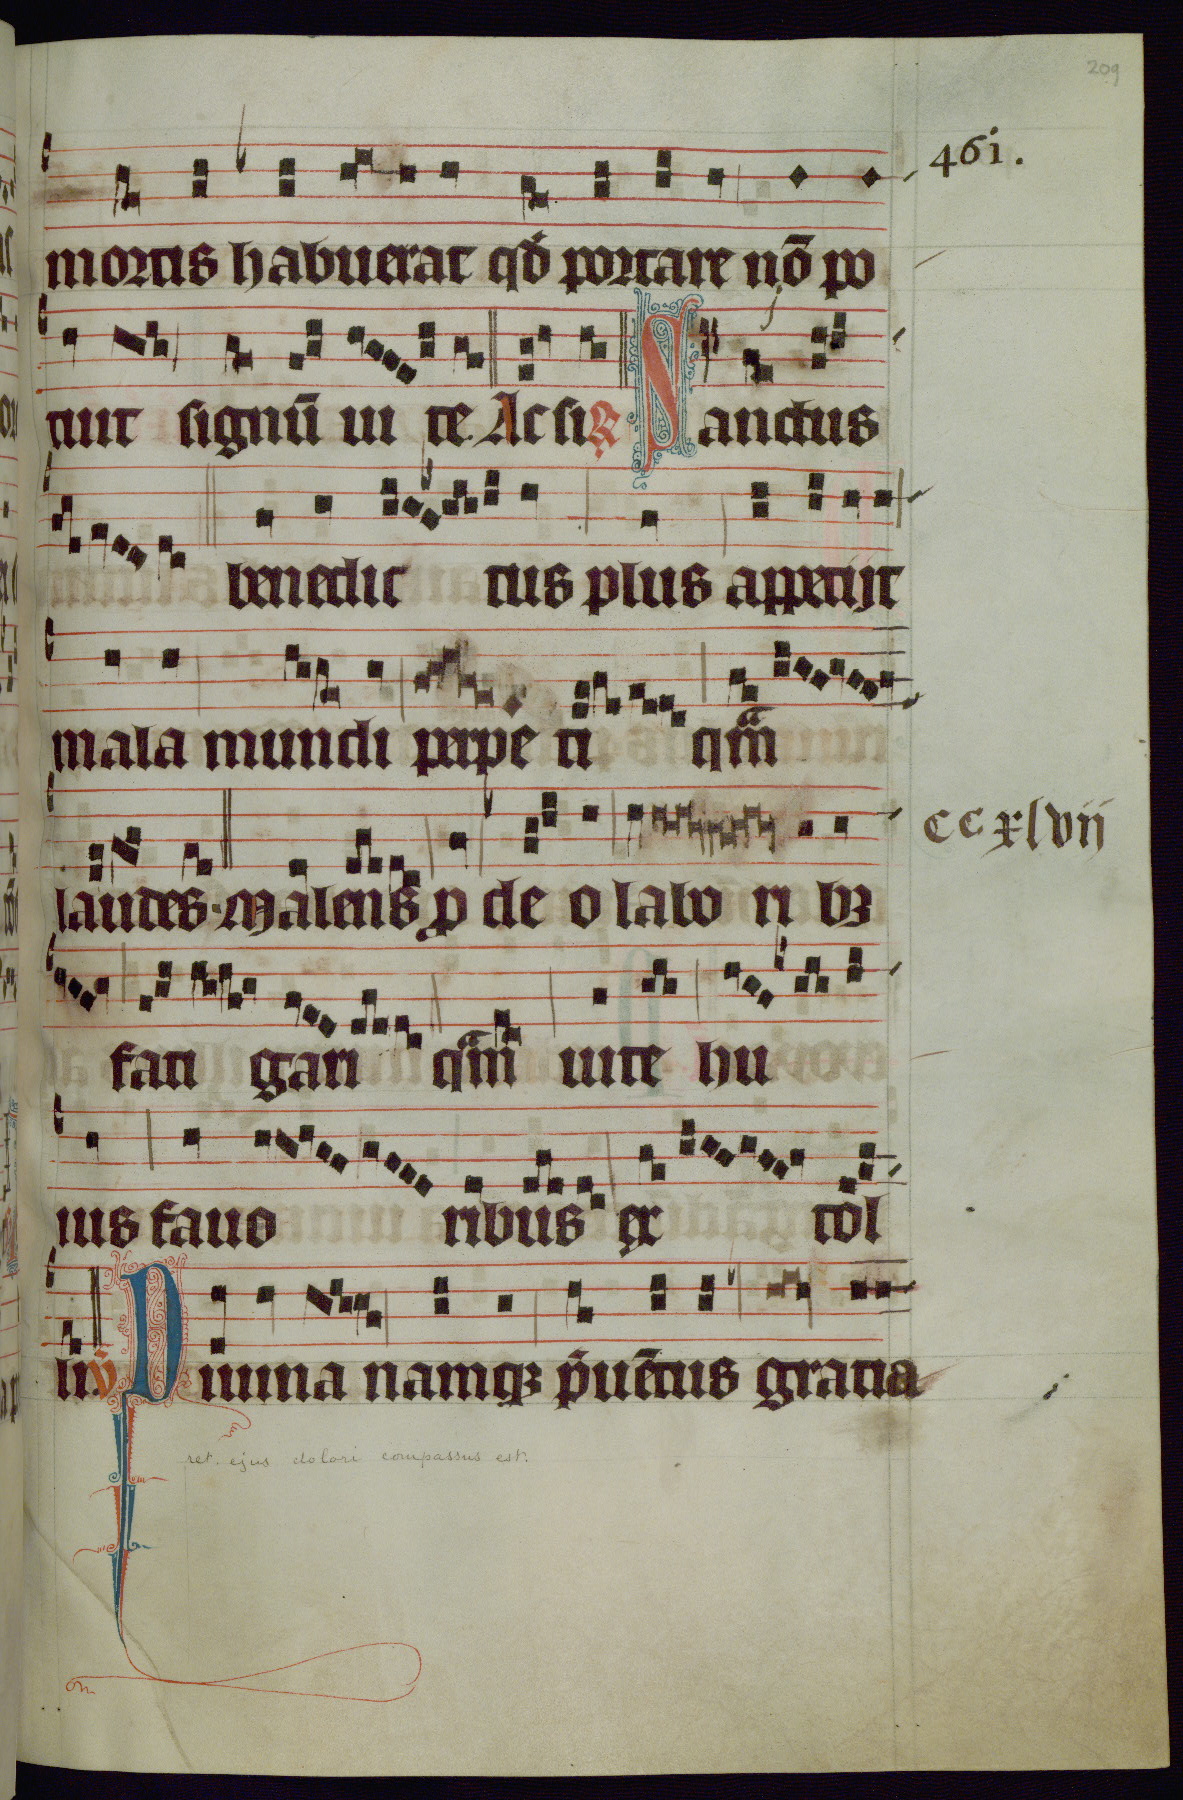 209
461.
mortis habuerat qd̄ portare nō po
tuit signū ui te. Ac si R Sanctus
benedic tus plus appetijt
mala mundi perpe ti qm̄
laudes. Malens p de o labo ri bꝫ
fati gari qm̄ uite hu
CCxlvij
ius fauo ribus ex tol
li. v̄ Diuina namqꝫ p̄uētus gratia
ret. ejus dolori compassus est.